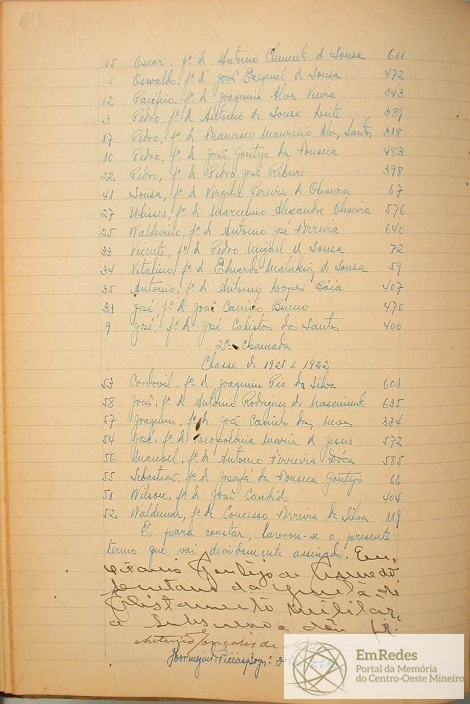 15 Oscar, fº. d Antonio Clemente d Sousa 611
Oswaldo, fº. d José Ezequiel d Sousa 472
12 Pacifico, fº. d Joaquim Alves Vieira 343
Pedro, fº. d Antonio de Sousa Leite 389
17 Pedro, fº. d Francisco Mauricio Alves Santos 318
10 Pedro, fº. d João Gontijo da Fonseca 483
22 Pedro, fº. d Pedro José Ribeiro 398
41 Sousa, fº. d Virgilio Pereira d Oliveira 67
27 Ulisses, fº. d Marcelino Alexandre Oliveira 576
25 Waldivino, fº. d Antonio José Ferreira 640
33 Vicente, fº. d Pedro Miguel d Sousa 72
34 Vitalino fº. d Eduardo Malakias d Sousa 59
35 Antonio, fº. d Antonio Lopes Dáia 407
31 José, fº. d João Camilo Bueno 470
9 José, fº. d José Calistos dos Santos 400
2ª. Chamada
Classe d 1921 e 1922
53 Cordovil, fº. d Joaquim Pio da Silva 601
58 João, fº. d Antonio Rodrigues do Nascimento 635
57 Joaquim, fº. d João Camilo das Neves 334
54 José, fº. d Maria d Jesus 572
56 Manoel, fº. d Antonio Ferreira Dóca 585
55 Sebastião, fº. d Josafá da Fonseca Gontijo 66
51 Wilson, fº. d João Candido 404
52 Waldemar, fº. d Concesso Ferreira da Silva 119
E, para constar, lavrou-se o presente
termo que vai devidamente assinado. Eu,
Gontijo de Azevedo
secretario da Junta de
Alistamento Militar,
o subscrevo e dou fé.
Antonio Gonçalves de
EmRedes
Portal da Memória
do Centro-Oeste Mineiro